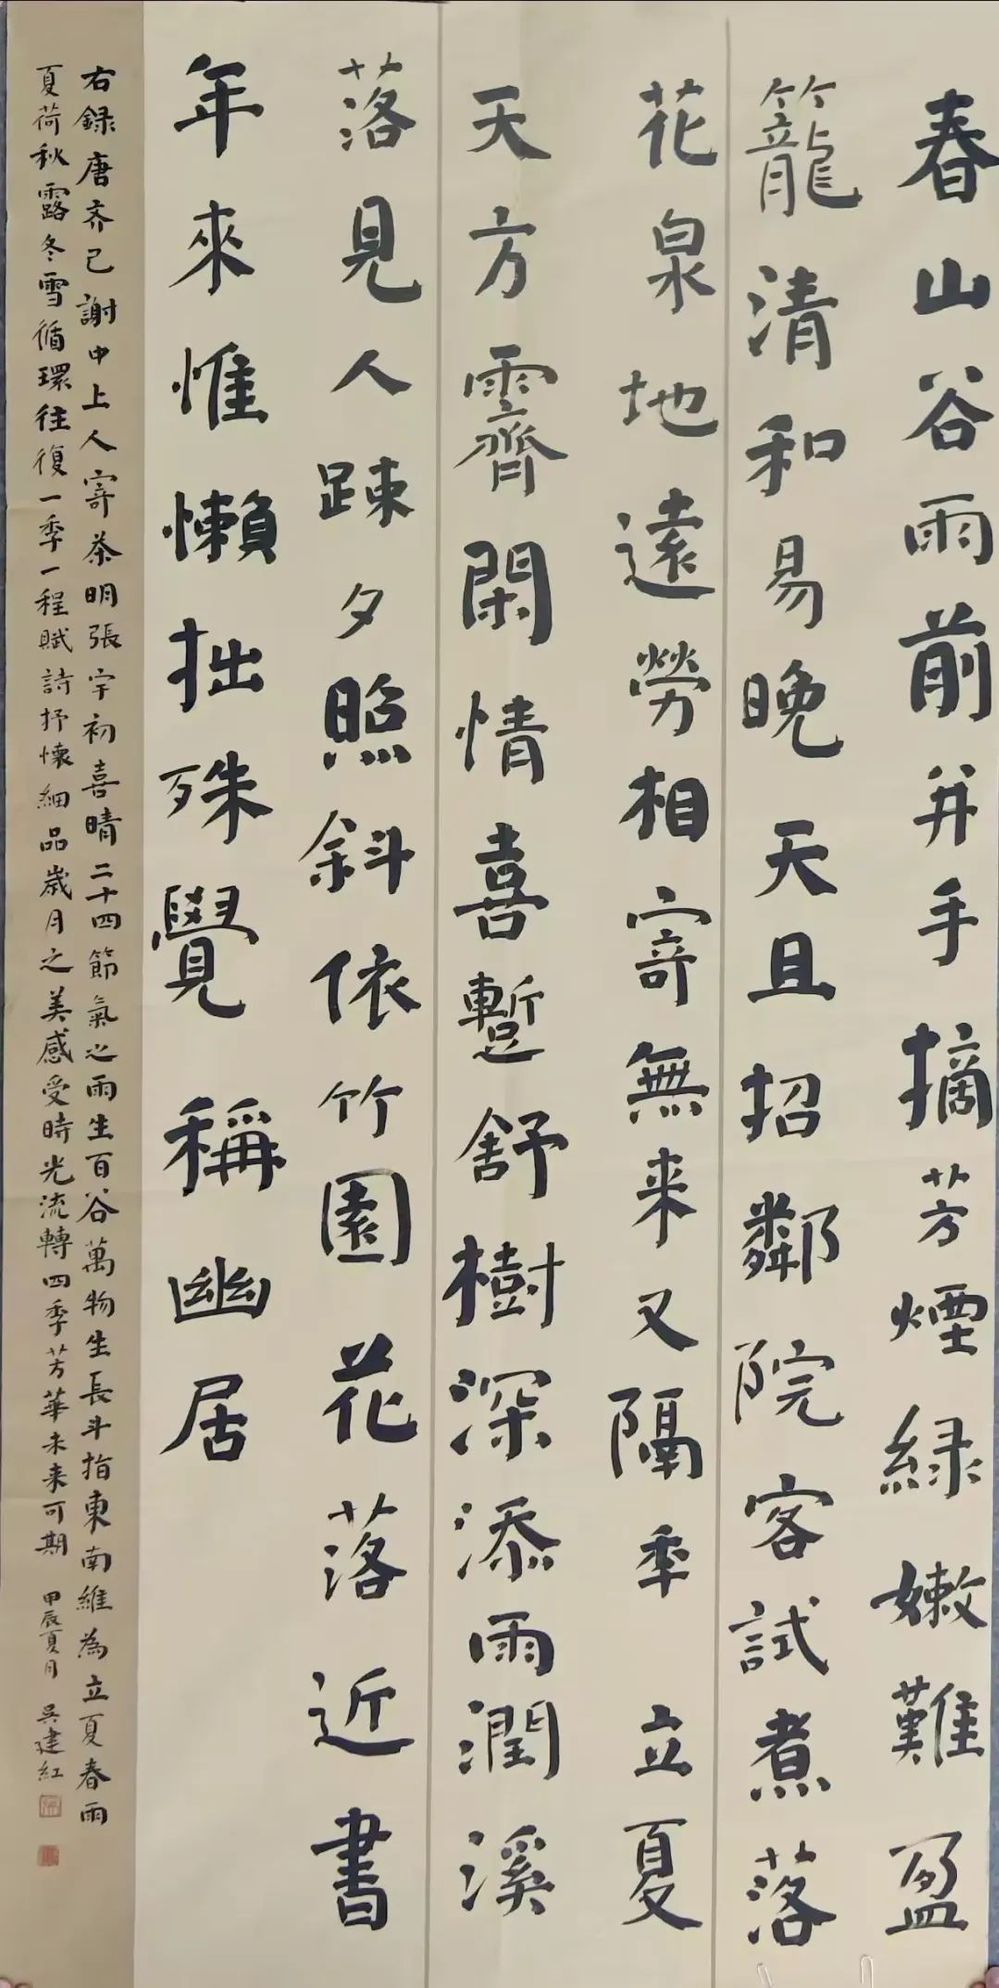 春山谷雨前并手摘芳煙緑嫩難盈
籠清和易晚天且招鄰院客試煮落
花泉地遠勞相寄無来又隔年立夏
天方霽閑情喜蹔舒樹深添雨潤溪
落見人踈夕照斜依竹園花落近書
年來惟懶拙殊覺稱幽居
右録唐齐己謝中上人寄茶明張宇初喜晴二十四節氣之雨生百谷萬物生長斗指東南維為立夏春雨
夏荷秋露冬雪循環往復一季一程賦詩抒懷細品歲月之美感受時光流轉四季芳華未来可期
甲辰夏月 吴建紅